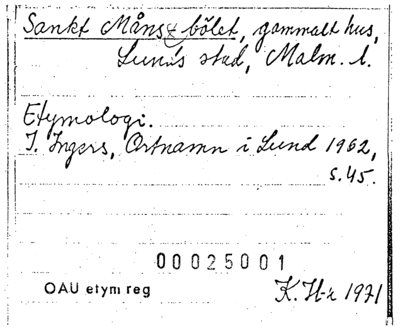 Sankt Måns bölet, gammalt hus,
Lunds stad, Malm. l.
Etymologi.
I. Ingers, Ortnamn i Lund 1962,
s. 45.
00025001
OAU etym reg
K. H-r 1971